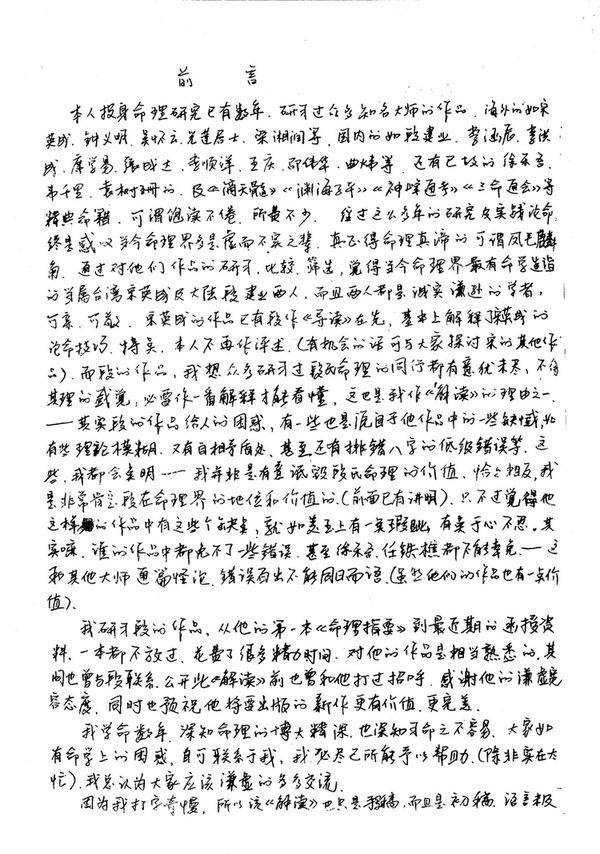 前 言
本人投身命理研究已有数年．研习过众多知名大师的作品．海外的如宋
英成．钟义明．吴怀云．光莲居士．梁湘润等．国内的如段建业．曾涵辰．李洪
成．廖学易．张成达．李顺祥．王庆．邵伟华．曲炜等．还有已故的徐乐吾．
韦千里．袁树珊的．及《滴天髓》《渊海子平》《神峰通考》《三命通会》等
经典命籍．可谓饱读不倦．所获不少．经过这么多年的研究及实践论命．
终是感叹当今命理界多是虚而不实之辈．真正得命理真谛的可谓凤毛麟
角．通过对他们作品的研习．比较．筛选，觉得当今命理界最有命学造诣
的当属台湾宋英成及大陆段建业两人．而且两人都是诚实谦逊的学者，
可亲．可敬．宋英成的作品已有段作《导读》在先，基本上解释了宋英成的
论命技巧．特点．本人不再作评述．(有机会的话可与大家探讨宋的其他作
品)．而段的作品，我想众多研习过段氏命理的同行都有意犹未尽．不得
其理的感觉，必需作一番解释才能看懂，这也是我作《解读》的理由之一．
——其实段的作品给人的困惑，有一些也是源自于他作品中的一些缺憾，比如
有些理论模糊．又有自相矛盾处．甚至还有排错八字的低级错误等．这
些．我都会点明——我并非是有意诋毁段氏命理的价值．恰恰相反，我
是非常肯定段在命理界的地位和价值的．(前面已有讲明)．只不过觉得他
这样的作品中有这些个缺点，就如美玉上有一点瑕疵，有点于心不忍．其
实嘛．谁的作品中都免不了一些错误．甚至徐乐吾．任铁樵都不能幸免——这
和其他大师通篇怪论．错误百出不能同日而语．(虽然他们的作品也有一点价
值)．
我研习段的作品．从他的第一本《命理指要》到最近期的函授资
料．一本都不放过．花费了很多精力时间．对他的作品是相当熟悉的．其
间也曾与段联系．公开此《解读》前也曾和他打过招呼．感谢他的谦虚宽
容态度．同时也预祝他将要出版的新作更有价值．更完美．
我学命数年．深知命理的博大精深．也深知习命之不容易．大家如
有命学上的困惑，自可联系于我，我必尽己所能予以帮助．(除非实在太
忙)．我总认为大家应该谦虚的多多交流．
因为我打字奇慢，所以该《解读》也只是手稿，而且是初稿．语言极